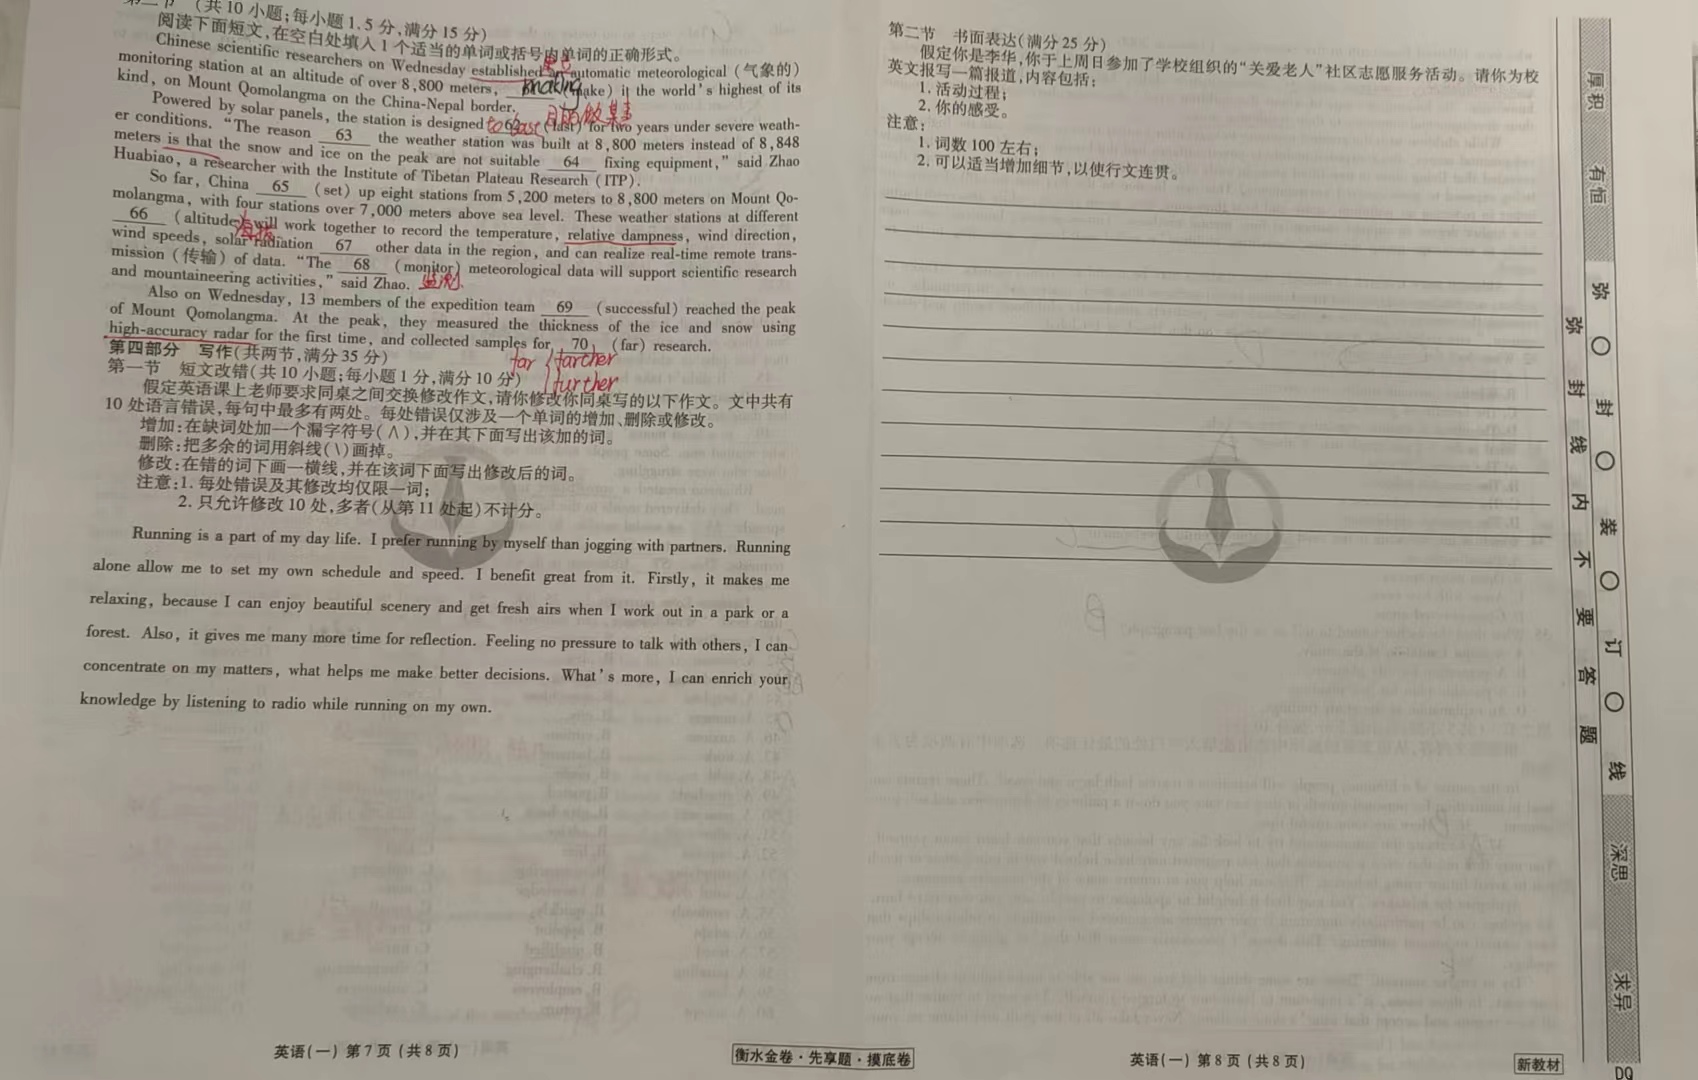 (共 10 小题;每小题 1.5 分,满分 15 分)
阅读下面短文,在空白处填入 1 个适当的单词或括号内单词的正确形式。
Chinese scientific researchers on Wednesday established an automatic meteorological (气象的)
monitoring station at an altitude of over 8,800 meters, making (make) it the world's highest of its
kind, on Mount Qomolangma on the China-Nepal border.
Powered by solar panels, the station is designed to last 62 (last) for two years under severe weath-
er conditions. "The reason 63 the weather station was built at 8,800 meters instead of 8,848
meters is that the snow and ice on the peak are not suitable 64 fixing equipment," said Zhao
Huabiao, a researcher with the Institute of Tibetan Plateau Research (ITP).
So far, China 65 (set) up eight stations from 5,200 meters to 8,800 meters on Mount Qo-
molangma, with four stations over 7,000 meters above sea level. These weather stations at different
66 (altitude) will work together to record the temperature, relative dampness, wind direction,
wind speeds, solar radiation 67 other data in the region, and can realize real-time remote trans-
mission (传输) of data. "The 68 (monitor) meteorological data will support scientific research
and mountaineering activities," said Zhao. 监测
Also on Wednesday, 13 members of the expedition team 69 (successful) reached the peak
of Mount Qomolangma. At the peak, they measured the thickness of the ice and snow using
high-accuracy radar for the first time, and collected samples for 70 (far) research.
far { farther
further
第四部分 写作(共两节,满分 35 分)
第一节 短文改错(共 10 小题;每小题 1 分,满分 10 分)
假定英语课上老师要求同桌之间交换修改作文,请你修改你同桌写的以下作文。文中共有
10 处语言错误,每句中最多有两处。每处错误仅涉及一个单词的增加、删除或修改。
增加:在缺词处加一个漏字符号(∧),并在其下面写出该加的词。
删除:把多余的词用斜线(\)画掉。
修改:在错的词下画一横线,并在该词下面写出修改后的词。
注意:1. 每处错误及其修改均仅限一词;
2. 只允许修改 10 处,多者(从第 11 处起)不计分。
Running is a part of my day life. I prefer running by myself than jogging with partners. Running
alone allow me to set my own schedule and speed. I benefit great from it. Firstly, it makes me
relaxing, because I can enjoy beautiful scenery and get fresh airs when I work out in a park or a
forest. Also, it gives me many more time for reflection. Feeling no pressure to talk with others, I can
concentrate on my matters, what helps me make better decisions. What's more, I can enrich your
knowledge by listening to radio while running on my own.
英语(一) 第 7 页 (共 8 页)
衡水金卷·先享题·摸底卷
第二节 书面表达(满分 25 分)
假定你是李华,你于上周日参加了学校组织的“关爱老人”社区志愿服务活动。请你为校
英文报写一篇报道,内容包括:
1. 活动过程;
2. 你的感受。
注意:
1. 词数 100 左右;
2. 可以适当增加细节,以使行文连贯。
英语(一) 第 8 页 (共 8 页)
新教材
弥 封 线 内 不 要 答 题
厚积 有恒 弥 封 装 订 线 深思 求异
DQ